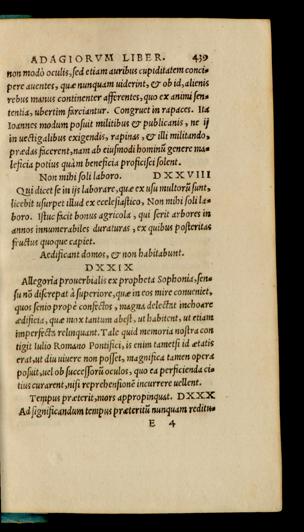 ADAGIORVM LIBER. 439
non modò oculis, sed etiam auribus cupiditatem conci-
pere auentes, quæ nunquam uiderint, & ob id, alienis
rebus manus continenter afferentes, quo ex animi sen-
tentia, ubertim farciantur. Congruet in rapaces. Ita
Ioannes modum posuit militibus & publicanis, ne ij
in uectigalibus exigendis, rapinas, & illi militando,
prædas facerent, nam ab eiusmodi hominũ genere ma-
leficia potius quàm beneficia proficisci solent.
Non mihi soli laboro. DXXVIII
Qui dicet se in ijs laborare, quæ ex usu multorũ sunt,
licebit usurpet illud ex ecclesiastico, Non mihi soli la-
boro. Istuc facit bonus agricola, qui serit arbores in
annos innumerabiles duraturas, ex quibus posteritas
fructus quoque capiet.
Aedificant domos, & non habitabunt.
DXXIX
Allegoria prouerbialis ex propheta Sophonia, sen-
su nõ discrepat à superiore, quæ in eos mire conueniet,
quos senio propè confectos, magna delectat inchoare
ædificia, quæ mox tantum abest, ut habitent, ut etiam
imperfecta relinquant. Tale quid memoria nostra con
tigit Iulio Romano Pontifici, is enim tametsi id ætatis
erat, ut diu uiuere non posset, magnifica tamen opera
posuit, uel ob successorũ oculos, quo ea perficienda ci-
tius curarent, nisi reprehensionẽ incurrere uellent.
Tempus præterit, mors appropinquat. DXXX
Ad significandum tempus præteritũ nunquam reditu-
E 4